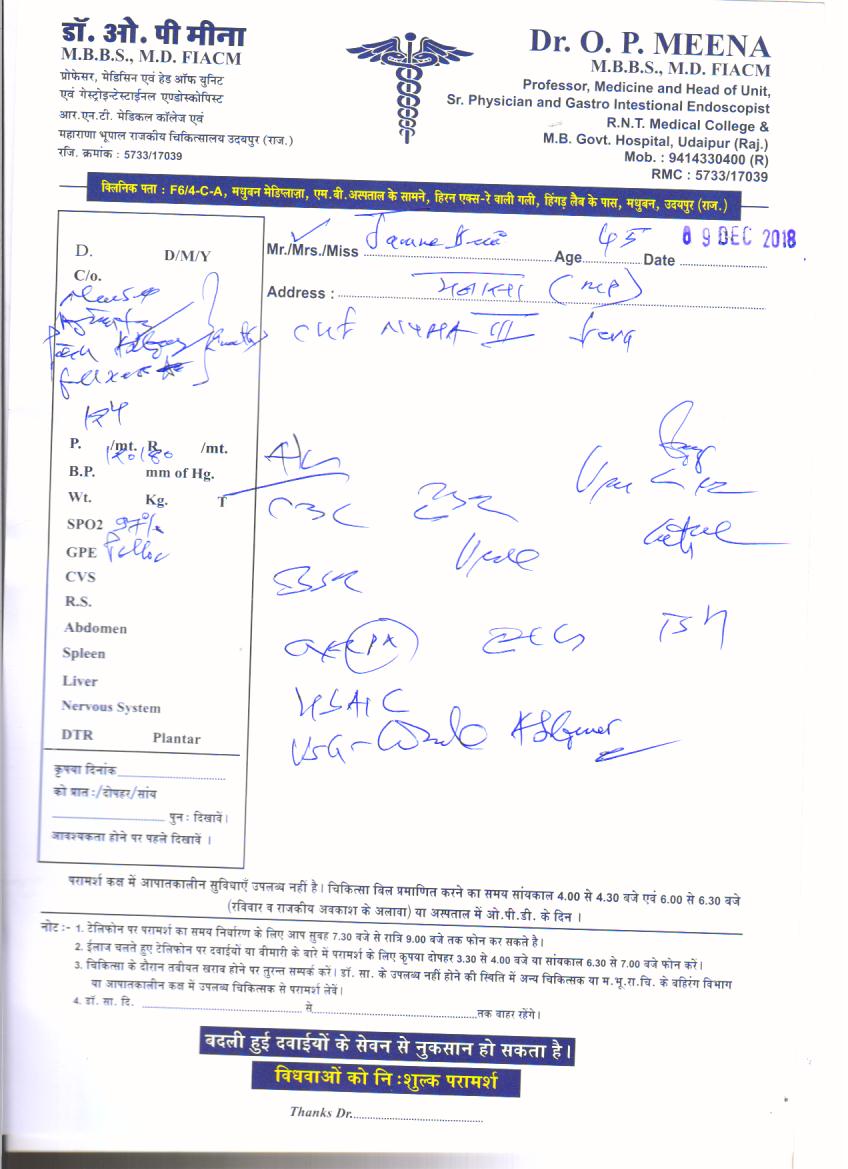 डॉ. ओ. पी मीना
M.B.B.S., M.D. FIACM
प्रोफेसर, मेडिसिन एवं हेड ऑफ युनिट
एवं गेस्ट्रोइन्टेस्टाईनल एण्डोस्कोपिस्ट
आर.एन.टी. मेडिकल कॉलेज एवं
महाराणा भूपाल राजकीय चिकित्सालय उदयपुर (राज.)
रजि. क्रमांक : 5733/17039
Dr. O. P. MEENA
M.B.B.S., M.D. FIACM
Professor, Medicine and Head of Unit,
Sr. Physician and Gastro Intestional Endoscopist
R.N.T. Medical College &
M.B. Govt. Hospital, Udaipur (Raj.)
Mob. : 9414330400 (R)
RMC : 5733/17039
क्लिनिक पता : F6/4-C-A, मधुबन मेडिप्लाज़ा, एम.बी.अस्पताल के सामने, हिरन एक्स-रे वाली गली, हिंगड़ लैब के पास, मधुबन, उदयपुर (राज.)
Mr./Mrs./Miss Age 45 Date 09 DEC 2018
Address : (MP)
D. D/M/Y
C/o.
CHF NYHA III
124
P. /mt. R. /mt.
120/80
B.P. mm of Hg.
Wt. Kg. T
SPO2 97%
GPE Pallor
CVS
R.S.
Abdomen
Spleen
Liver
Nervous System
DTR Plantar
CBC ESR
Urea
CXR (PA) ECG TSH
HBA1C
USG - Whole Abdomen
कृपया दिनांक
को प्रात :/दोपहर/सांय
पुन: दिखावें।
आवश्यकता होने पर पहले दिखावें ।
परामर्श कक्ष में आपातकालीन सुविधाएँ उपलब्ध नहीं है। चिकित्सा बिल प्रमाणित करने का समय सांयकाल 4.00 से 4.30 बजे एवं 6.00 से 6.30 बजे
(रविवार व राजकीय अवकाश के अलावा) या अस्पताल में ओ.पी.डी. के दिन ।
नोट :- 1. टेलिफोन पर परामर्श का समय निर्धारण के लिए आप सुबह 7.30 बजे से रात्रि 9.00 बजे तक फोन कर सकते है।
2. ईलाज चलते हुए टेलिफोन पर दवाईयों या बीमारी के बारे में परामर्श के लिए कृपया दोपहर 3.30 से 4.00 बजे या सांयकाल 6.30 से 7.00 बजे फोन करें।
3. चिकित्सा के दौरान तबीयत खराब होने पर तुरन्त सम्पर्क करें। डॉ. सा. के उपलब्ध नहीं होने की स्थिति में अन्य चिकित्सक या म.भू.रा.चि. के बहिरंग विभाग
या आपातकालीन कक्ष में उपलब्ध चिकित्सक से परामर्श लेवें।
4. डॉ. सा. दि. से तक बाहर रहेंगे।
बदली हुई दवाईयों के सेवन से नुकसान हो सकता है।
विधवाओं को नि :शुल्क परामर्श
Thanks Dr.